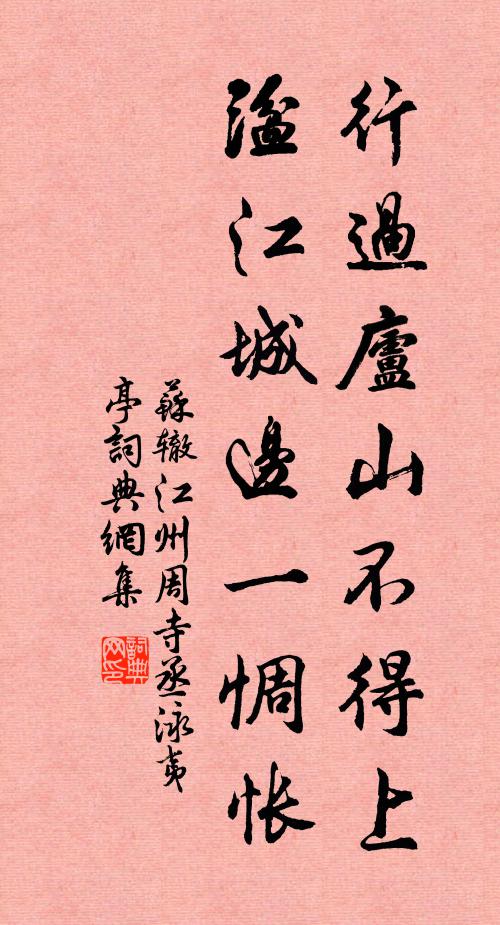 行過廬山不得上
湓江城邊一惆悵
蘇辙江州周寺丞泳夷
亭詞典網集
詞典
网印